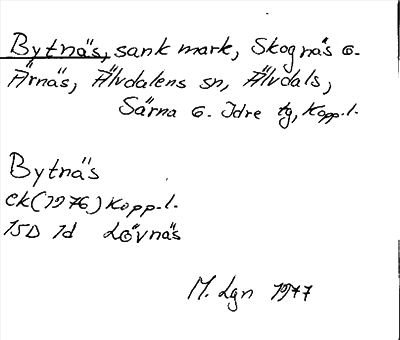 Bytnäs, sank mark, Skognäs o.
Ärnäs, Älvdalens sn, Älvdals,
Särna o. Idre tg, Kopp.l.
Bytnäs
ek (1976) Kopp.l.
15D 1d Lövnäs
M. Lgn 1977